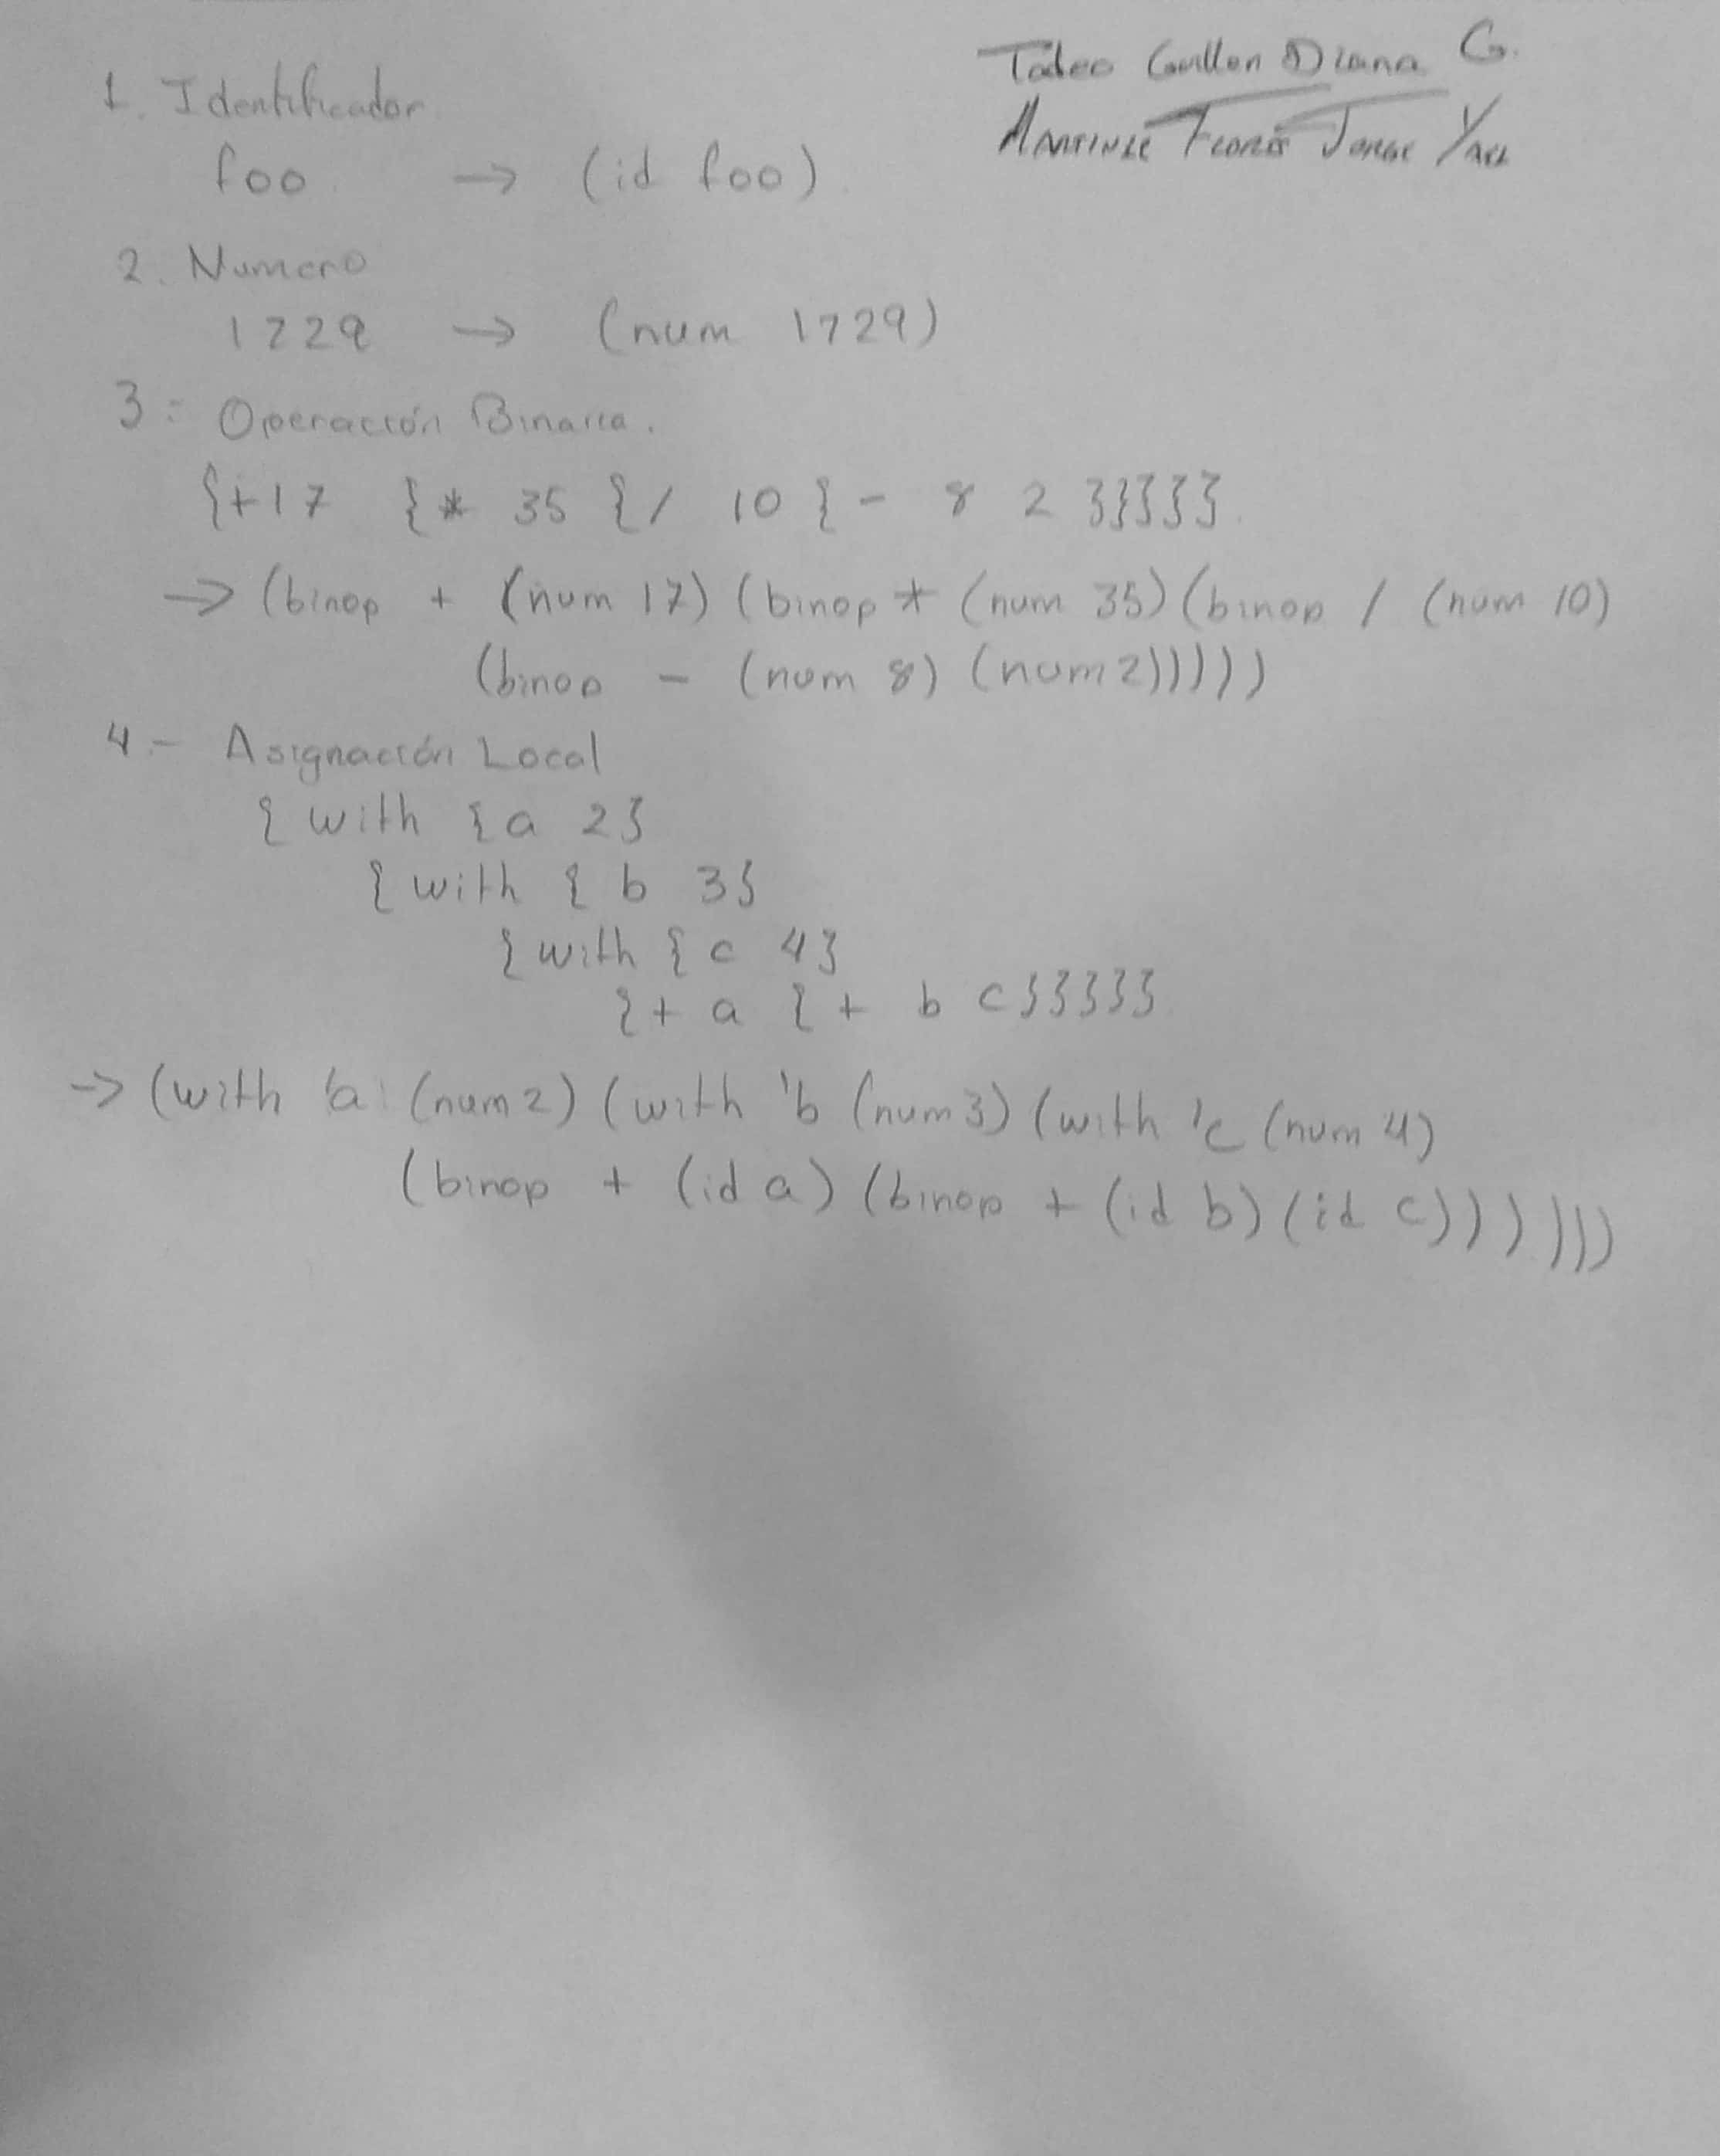 Tadeo Guillen Diana G.
Martinez Flores Jorge Yael
1. Identificador
foo → (id foo)
2. Numero
1729 → (num 1729)
3.- Operación Binaria.
{+17 {* 35 {/ 10 {- 8 2 }}}}}
→ (binop + (num 17) (binop * (num 35) (binop / (num 10)
(binop - (num 8) (num 2)))))
4.- Asignación Local
{ with {a 2}
{ with { b 3}
{ with { c 4}
{+ a {+ b c}}}}}
→ (with 'a (num 2) (with 'b (num 3) (with 'c (num 4)
(binop + (id a) (binop + (id b) (id c))))))